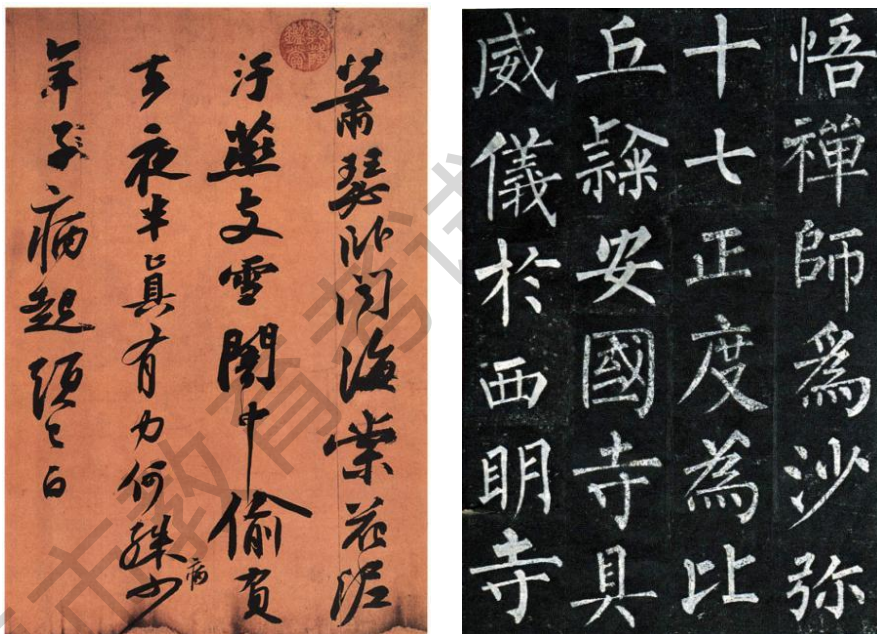 蕭瑟卧聞海棠花泥
汙燕支雪闇中偷負
去夜半眞有力何殊少
病
年子病起頭已白
悟禪師爲沙弥
十七正度為比
丘隸安國寺具
威儀於西明寺
市教育考试